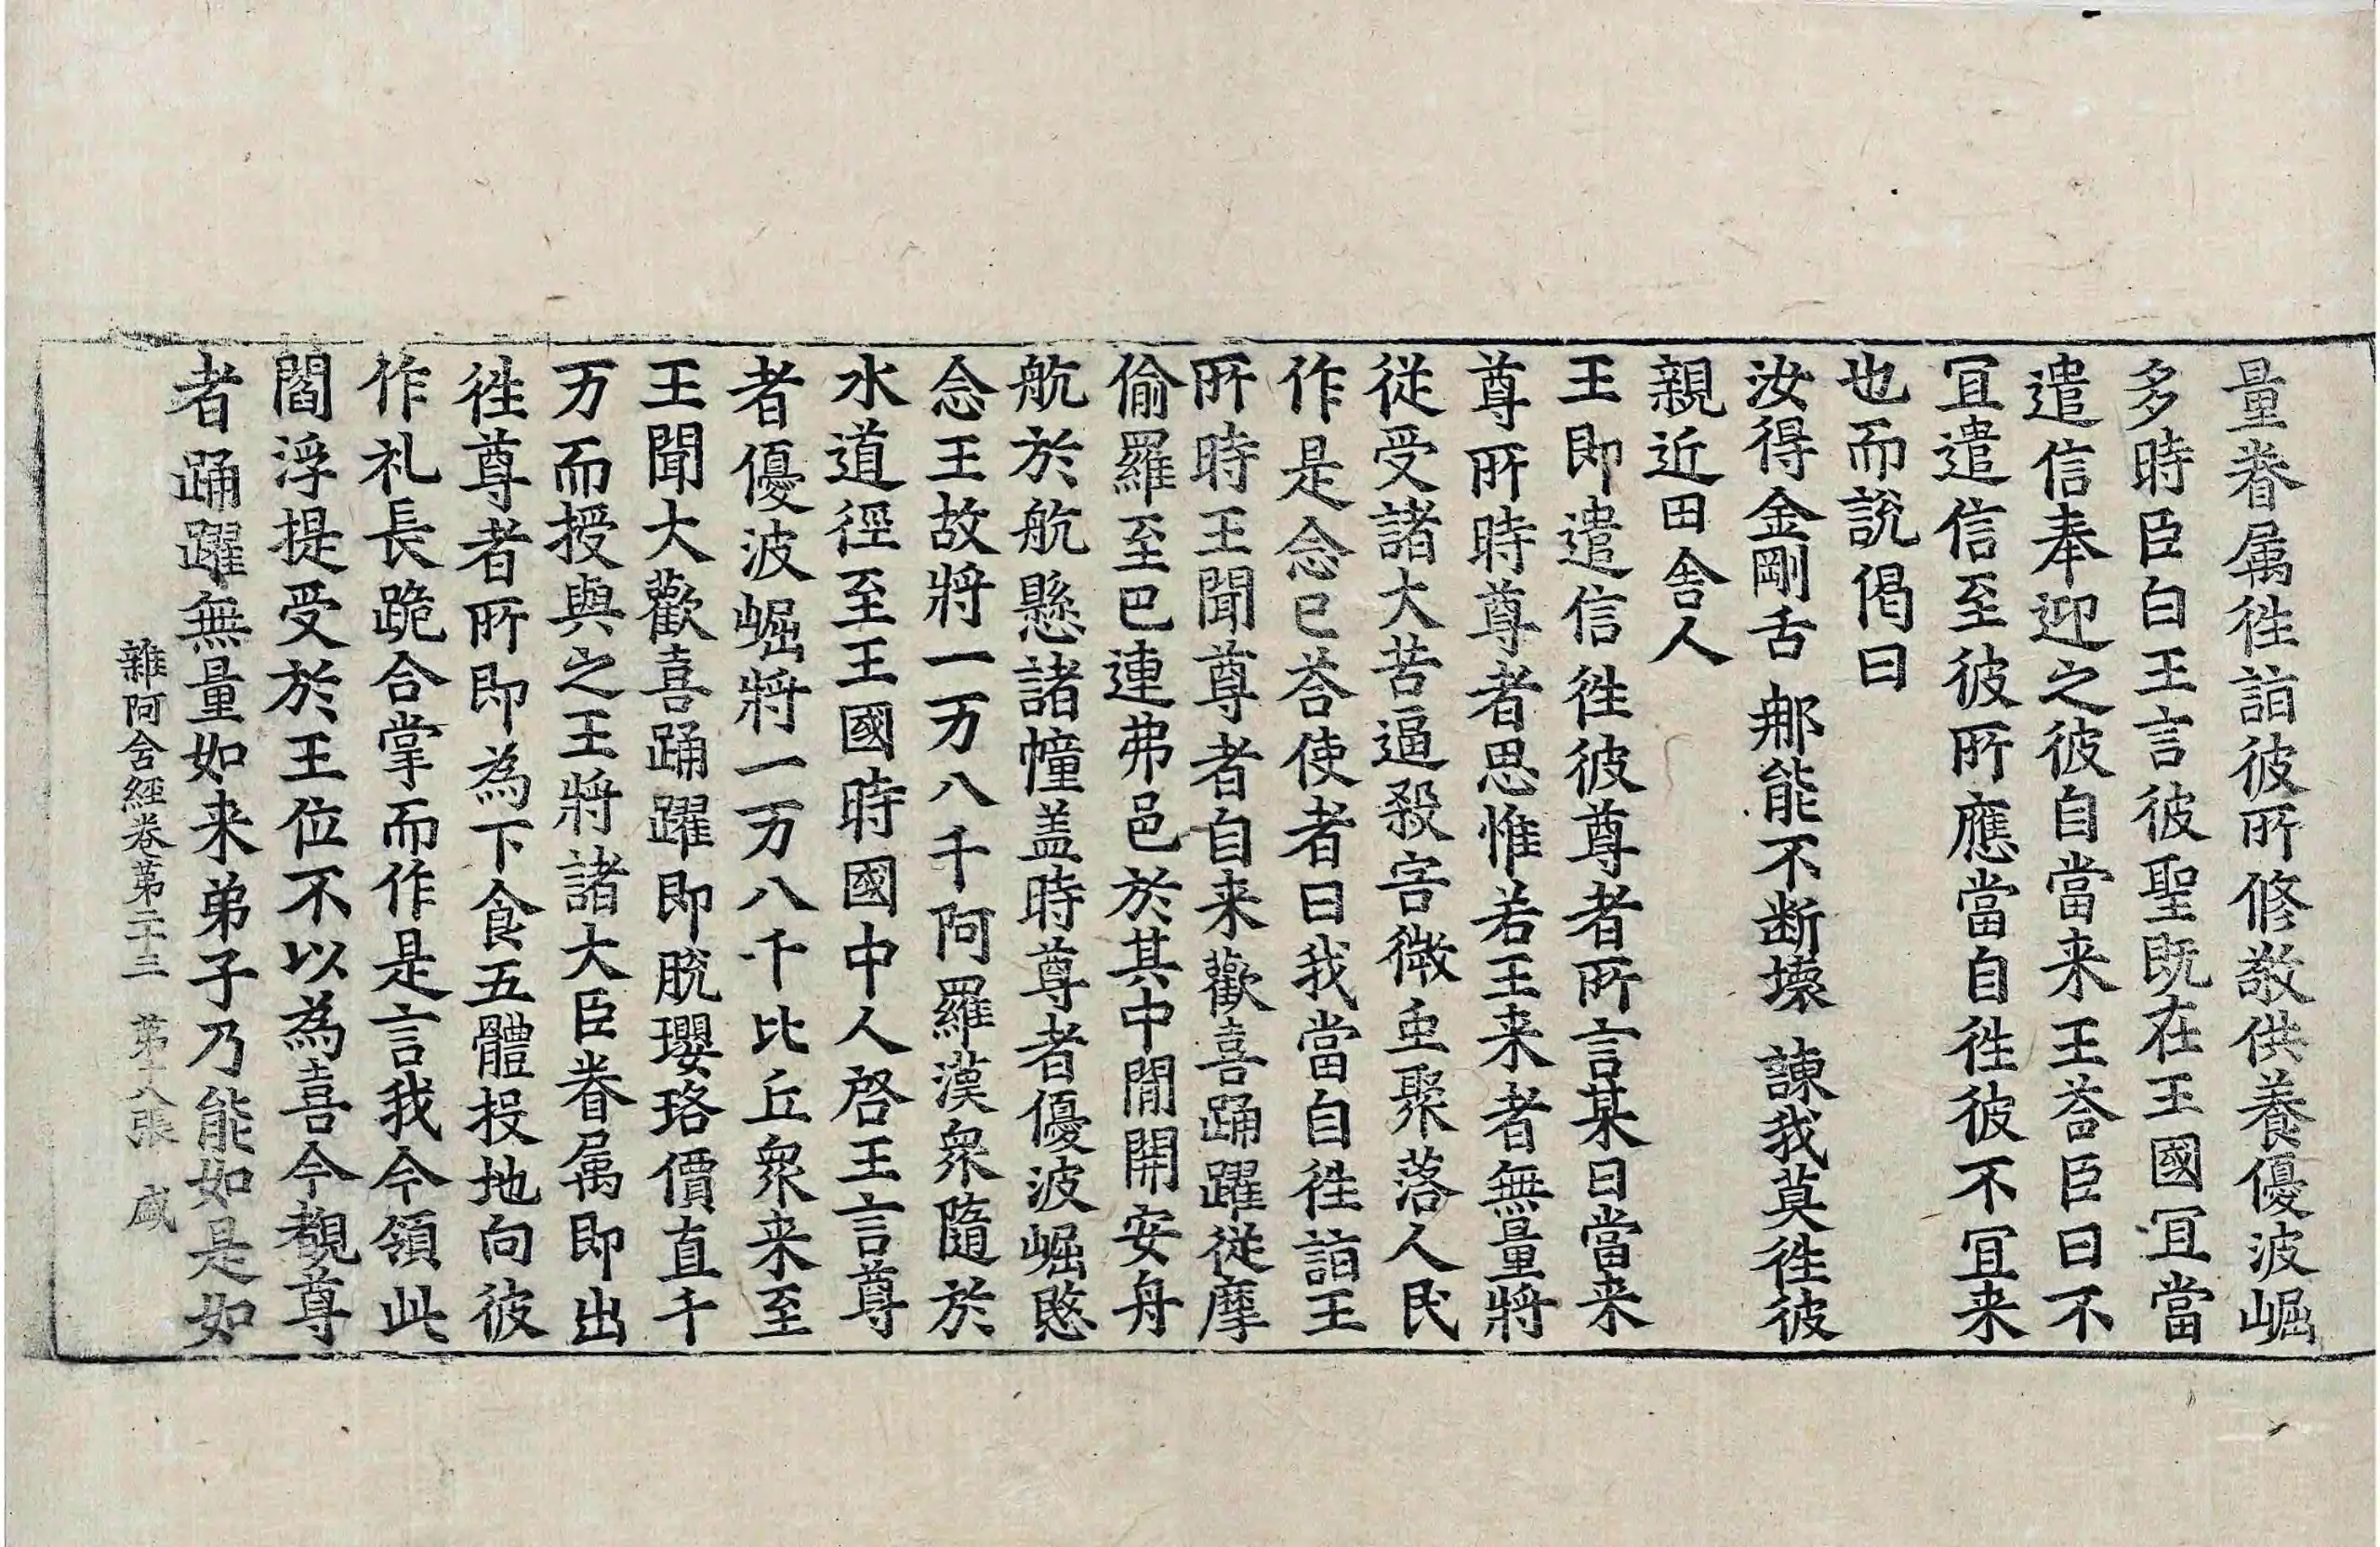 量眷属徃詣彼所修敬供養優波崛
多時臣白王言彼聖既在王國冝當
遣信奉迎之彼自當来王荅臣曰不
冝遣信至彼所應當自徃彼不冝来
也而說偈曰
汝得金剛舌 那能不断壞 諫我莫徃彼
親近田舎人
王即遣信徃彼尊者所言某日當来
尊所時尊者思惟若王来者無量將
従受諸大苦逼殺害微虫聚落人民
作是念已荅使者曰我當自徃詣王
所時王聞尊者自来歡喜踊躍従摩
偷羅至巴連弗邑於其中閒開安舟
航於航懸諸幢盖時尊者優波崛愍
念王故將一万八千阿羅漢衆隨於
水道徑至王國時國中人啓王言尊
者優波崛將一万八千比丘衆来至
王聞大歡喜踊躍即脫瓔珞價直千
万而授與之王將諸大臣眷属即出
徃尊者所即為下食五體投地向彼
作礼長跪合掌而作是言我今領此
閻浮提受於王位不以為喜今覩尊
者踊躍無量如来弟子乃能如是如
雜阿含經卷第二十三 第十八張 盛